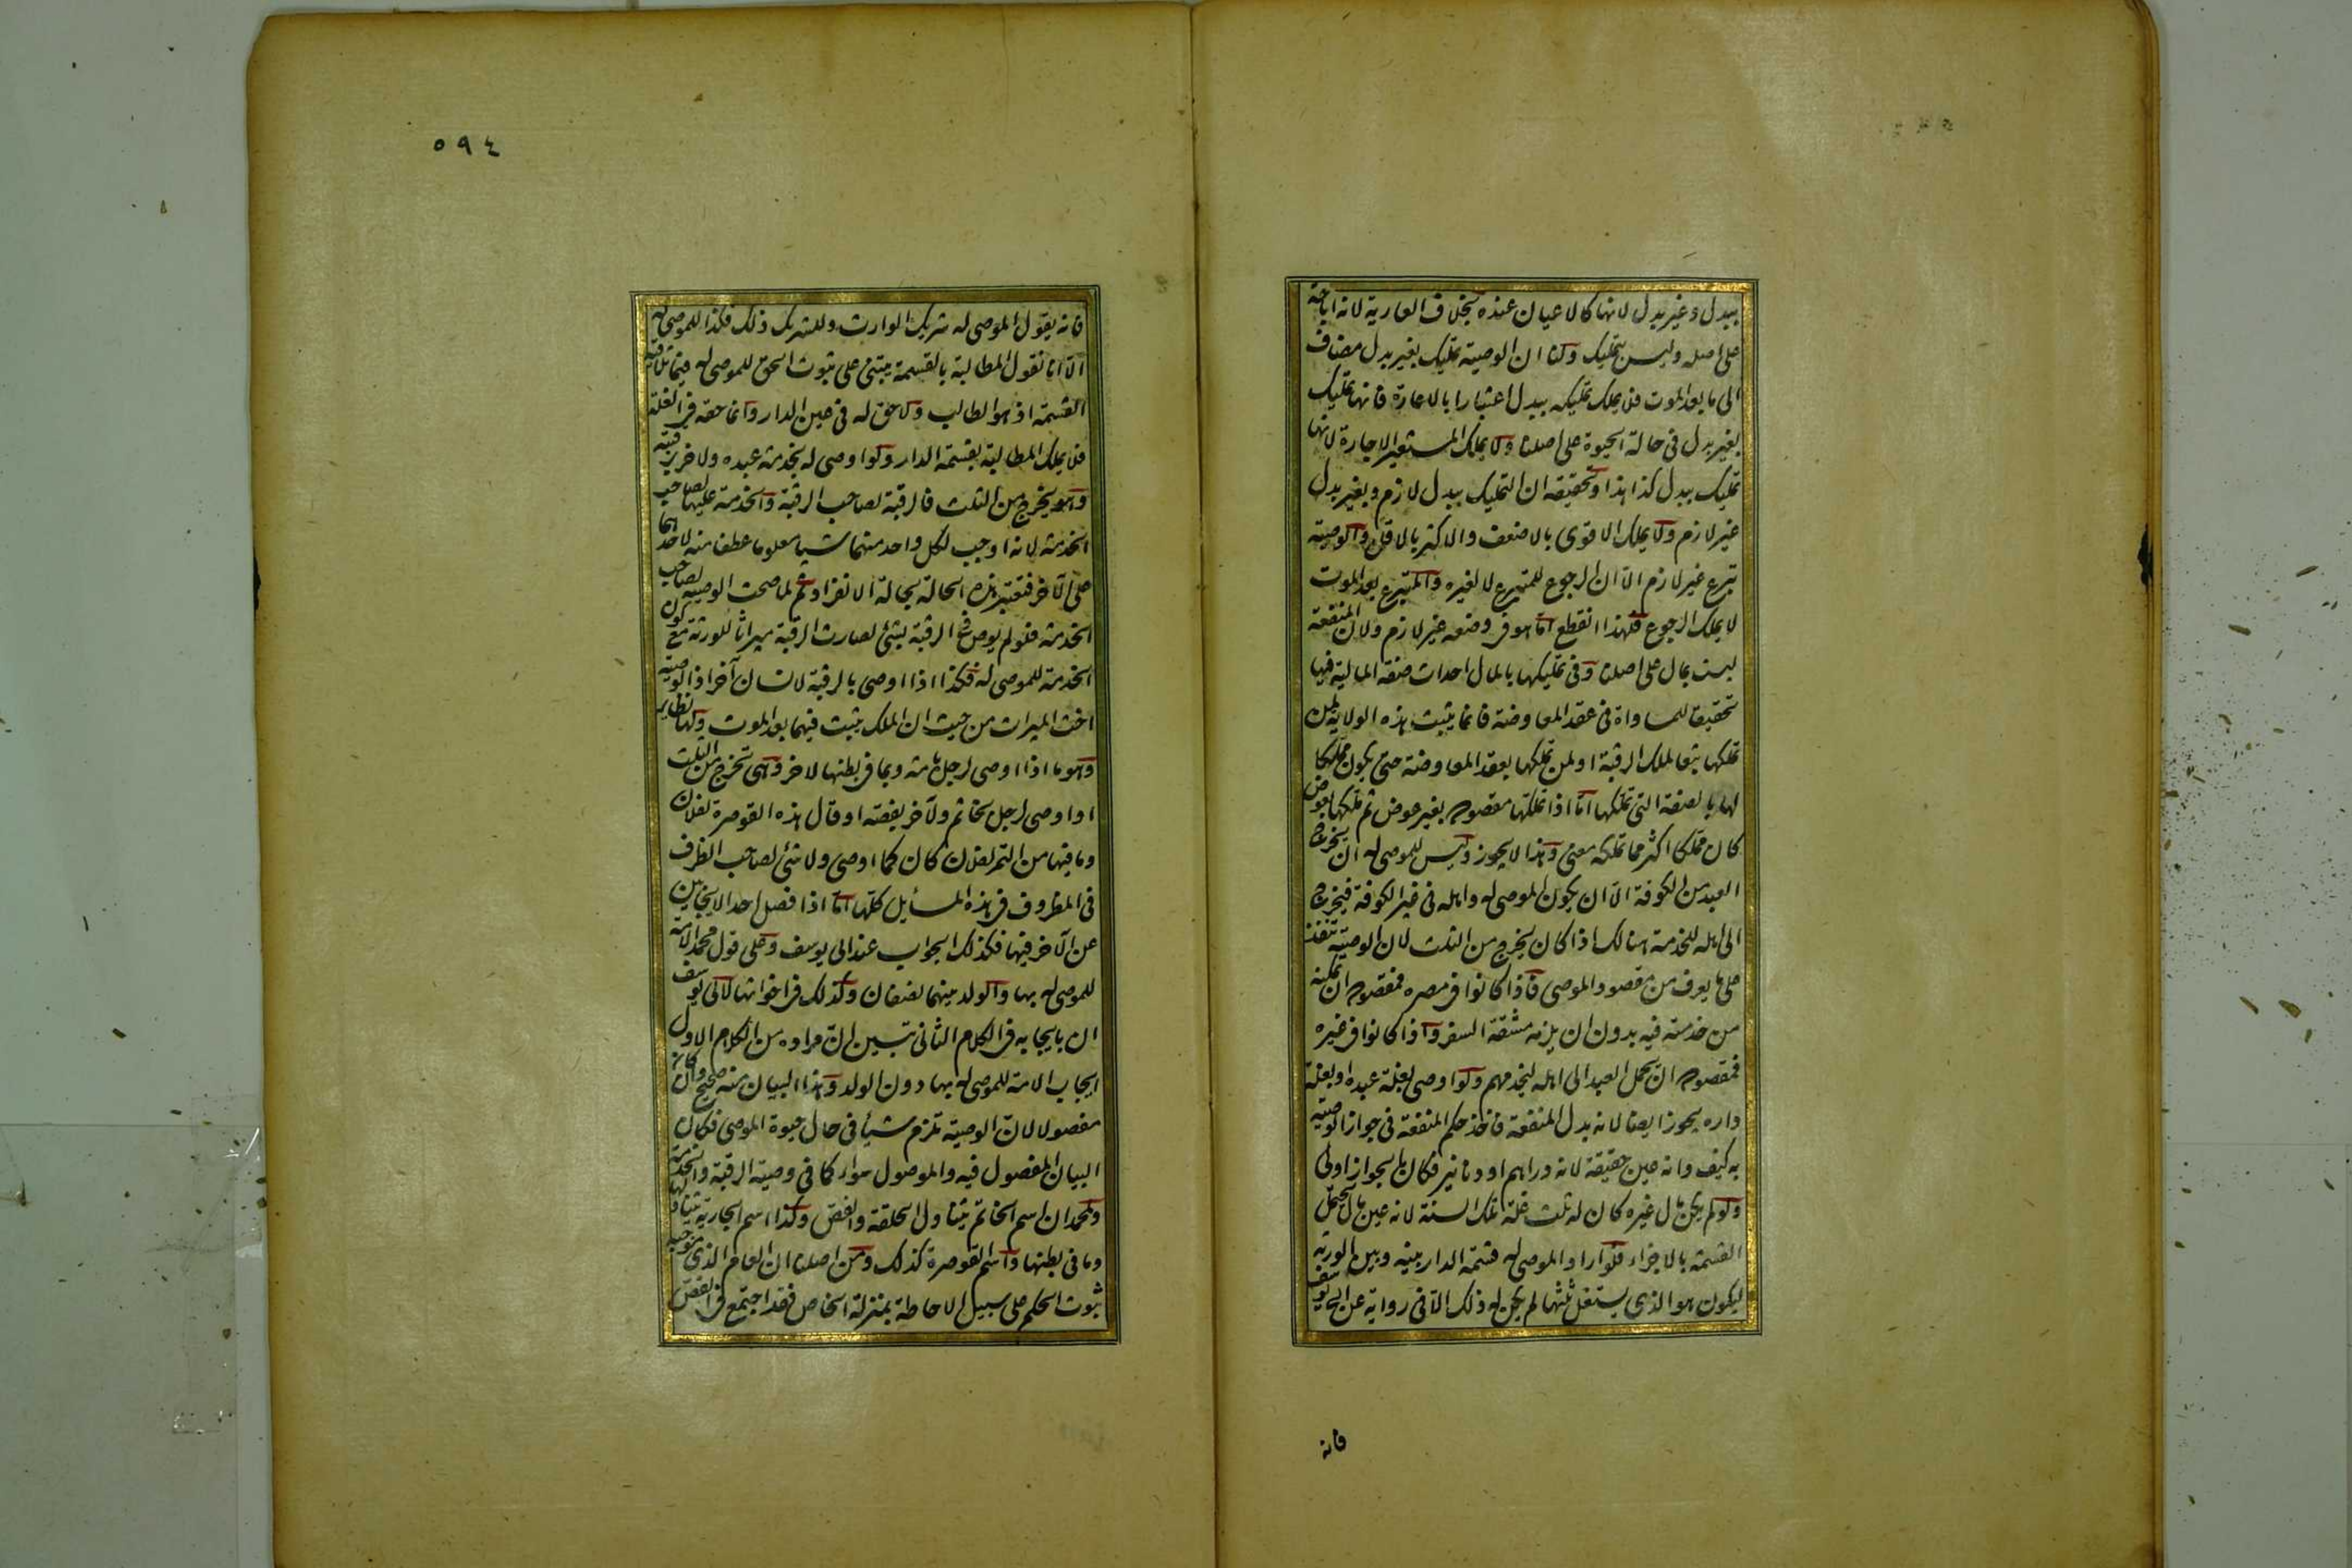 ببدل وغير بدل لانها كالاعيان عنده بخلاف العارية لانه اباحة
على اصله وليس بتمليك ولنا ان الوصية تمليك بغير بدل مضاف
الى ما بعد الموت فلا يملك تمليكه ببدل اعتبارا بالاعارة فانها تمليك
بغير بدل فى حالة الحيوة على اصلنا ولا يملك المستعير الاجارة لانها
تمليك ببدل كذا هذا وتحقيقه ان التمليك ببدل لازم وبغير بدل
غير لازم ولا يملك الاقوى بالاضعف والاكثر بالاقل والوصية
تبرع غير لازم الا ان الرجوع للمتبرع لا لغيره والمتبرع بعد الموت
لا يملك الرجوع فلهذا انقطع اما هو فى وضعه غير لازم ولان المنفعة
ليست بمال على اصلنا وفى تمليكها بالمال احداث صفة المالية فيها
تحقيقا للمساواة فى عقد المعاوضة فانما يثبت هذه الولاية لمن
تملكها تبعا لملك الرقبة او لمن تملكها بعقد المعاوضة حتى يكون مملكا
لها بالصفة التى تملكها اما اذا تملكها مقصودة بغير عوض ثم ملكها بعوض
كان مملكا اكثر مما تملكه معنى وهذا لا يجوز وليس للموصى له ان يخرج
العبد من الكوفة الا ان يكون الموصى له واهله فى غير الكوفة فيخرجه
الى اهله للخدمة هنالك اذا كان يخرج من الثلث لان الوصية تنفذ
على ما يعرف من مقصود الموصى فاذا كانوا فى مصره فمقصوده ان يمكنه
من خدمته فيه بدون ان يلزمه مشقة السفر واذا كانوا فى غيره
فمقصوده ان يحمل العبد الى اهله ليخدمهم ولو اوصى بغلة عبده او بغلة
داره يجوز ايضا لانه بدل المنفعة فاخذ حكم المنفعة فى جواز الوصية
به كيف وانه عين حقيقة لانه دراهم او دنانير فكان بالجواز اولى
ولو لم يكن مال غيره كان له ثلث غلة تلك السنة لانه عين مال يحتمل
القسمة بالاجزاء فلو اراد الموصى له قسمة الدار بينه وبين الورثة
ليكون هو الذى يستغل ثلثها لم يكن له ذلك الا فى رواية عن ابى يوسف
فانه
٥٩٤
فانه يقول الموصى له شريك الوارث وللشريك ذلك فكذا للموصى له
الا انا نقول المطالبة بالقسمة يبتنى على ثبوت الحق للموصى له فيما تلاقيه
القسمة اذ هو المطالب ولا حق له فى عين الدار وانما حقه فى الغلة
فلا يملك المطالبة بقسمة الدار ولو اوصى له بخدمة عبده ولاخر برقبته
وهو يخرج من الثلث فالرقبة لصاحب الرقبة والخدمة عليها لصاحب
الخدمة لانه اوجب لكل واحد منهما شيا معلوما عطفا منه لاحدهما
على الآخر فتعتبر هذه الحالة بحالة الانفراد ثم لما صحت الوصية لصاحب
الخدمة فلو لم يوص فى الرقبة بشئ لصارت الرقبة ميراثا للورثة مع كون
الخدمة للموصى له فكذا اذا اوصى بالرقبة لانسان آخر اذ الوصية
اخت الميراث من حيث ان الملك يثبت فيهما بعد الموت ولها نظاير
وهو ما اذا اوصى لرجل بامة وبما فى بطنها لاخر وهى تخرج من الثلث
او اوصى لرجل بخاتم ولآخر بفصه او قال هذه القوصرة لفلان
وما فيها من التمر لفلان كان كما اوصى ولا شئ لصاحب الظرف
فى المظروف فى هذه المسايل كلها اما اذا فصل احد الايجابين
عن الآخر فيها فكذلك الجواب عند ابى يوسف وعلى قول محمد الامة
للموصى له بها والولد بينهما نصفان وكذلك فى اخواتها لابى يوسف
ان بايجابه فى الكلام الثانى تبين ان مراده من الكلام الاول
ايجاب الامة للموصى له بها دون الولد وهذا البيان منه صحيح وان كان
مفصولا لان الوصية تلزم شيأ فى حال حيوة الموصى فكان
البيان المفصول فيه والموصول سواء كما فى وصية الرقبة والخدمة
ولمحمد ان اسم الخاتم يتناول الحلقة والفص وكذا اسم الجارية يتناولها
وما فى بطنها واسم القوصرة كذلك ومن اصلنا ان العام الذى موجبه
ثبوت الحكم على سبيل الاحاطة بمنزلة الخاص فقد اجتمع فى الفص